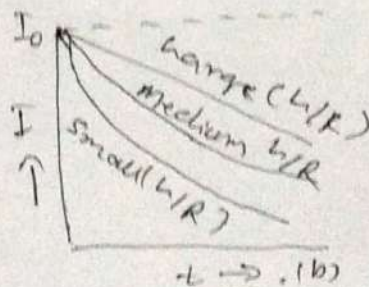 I₀
Large (L/R)
medium L/R
I
small (L/R)
↑
t → . (b)